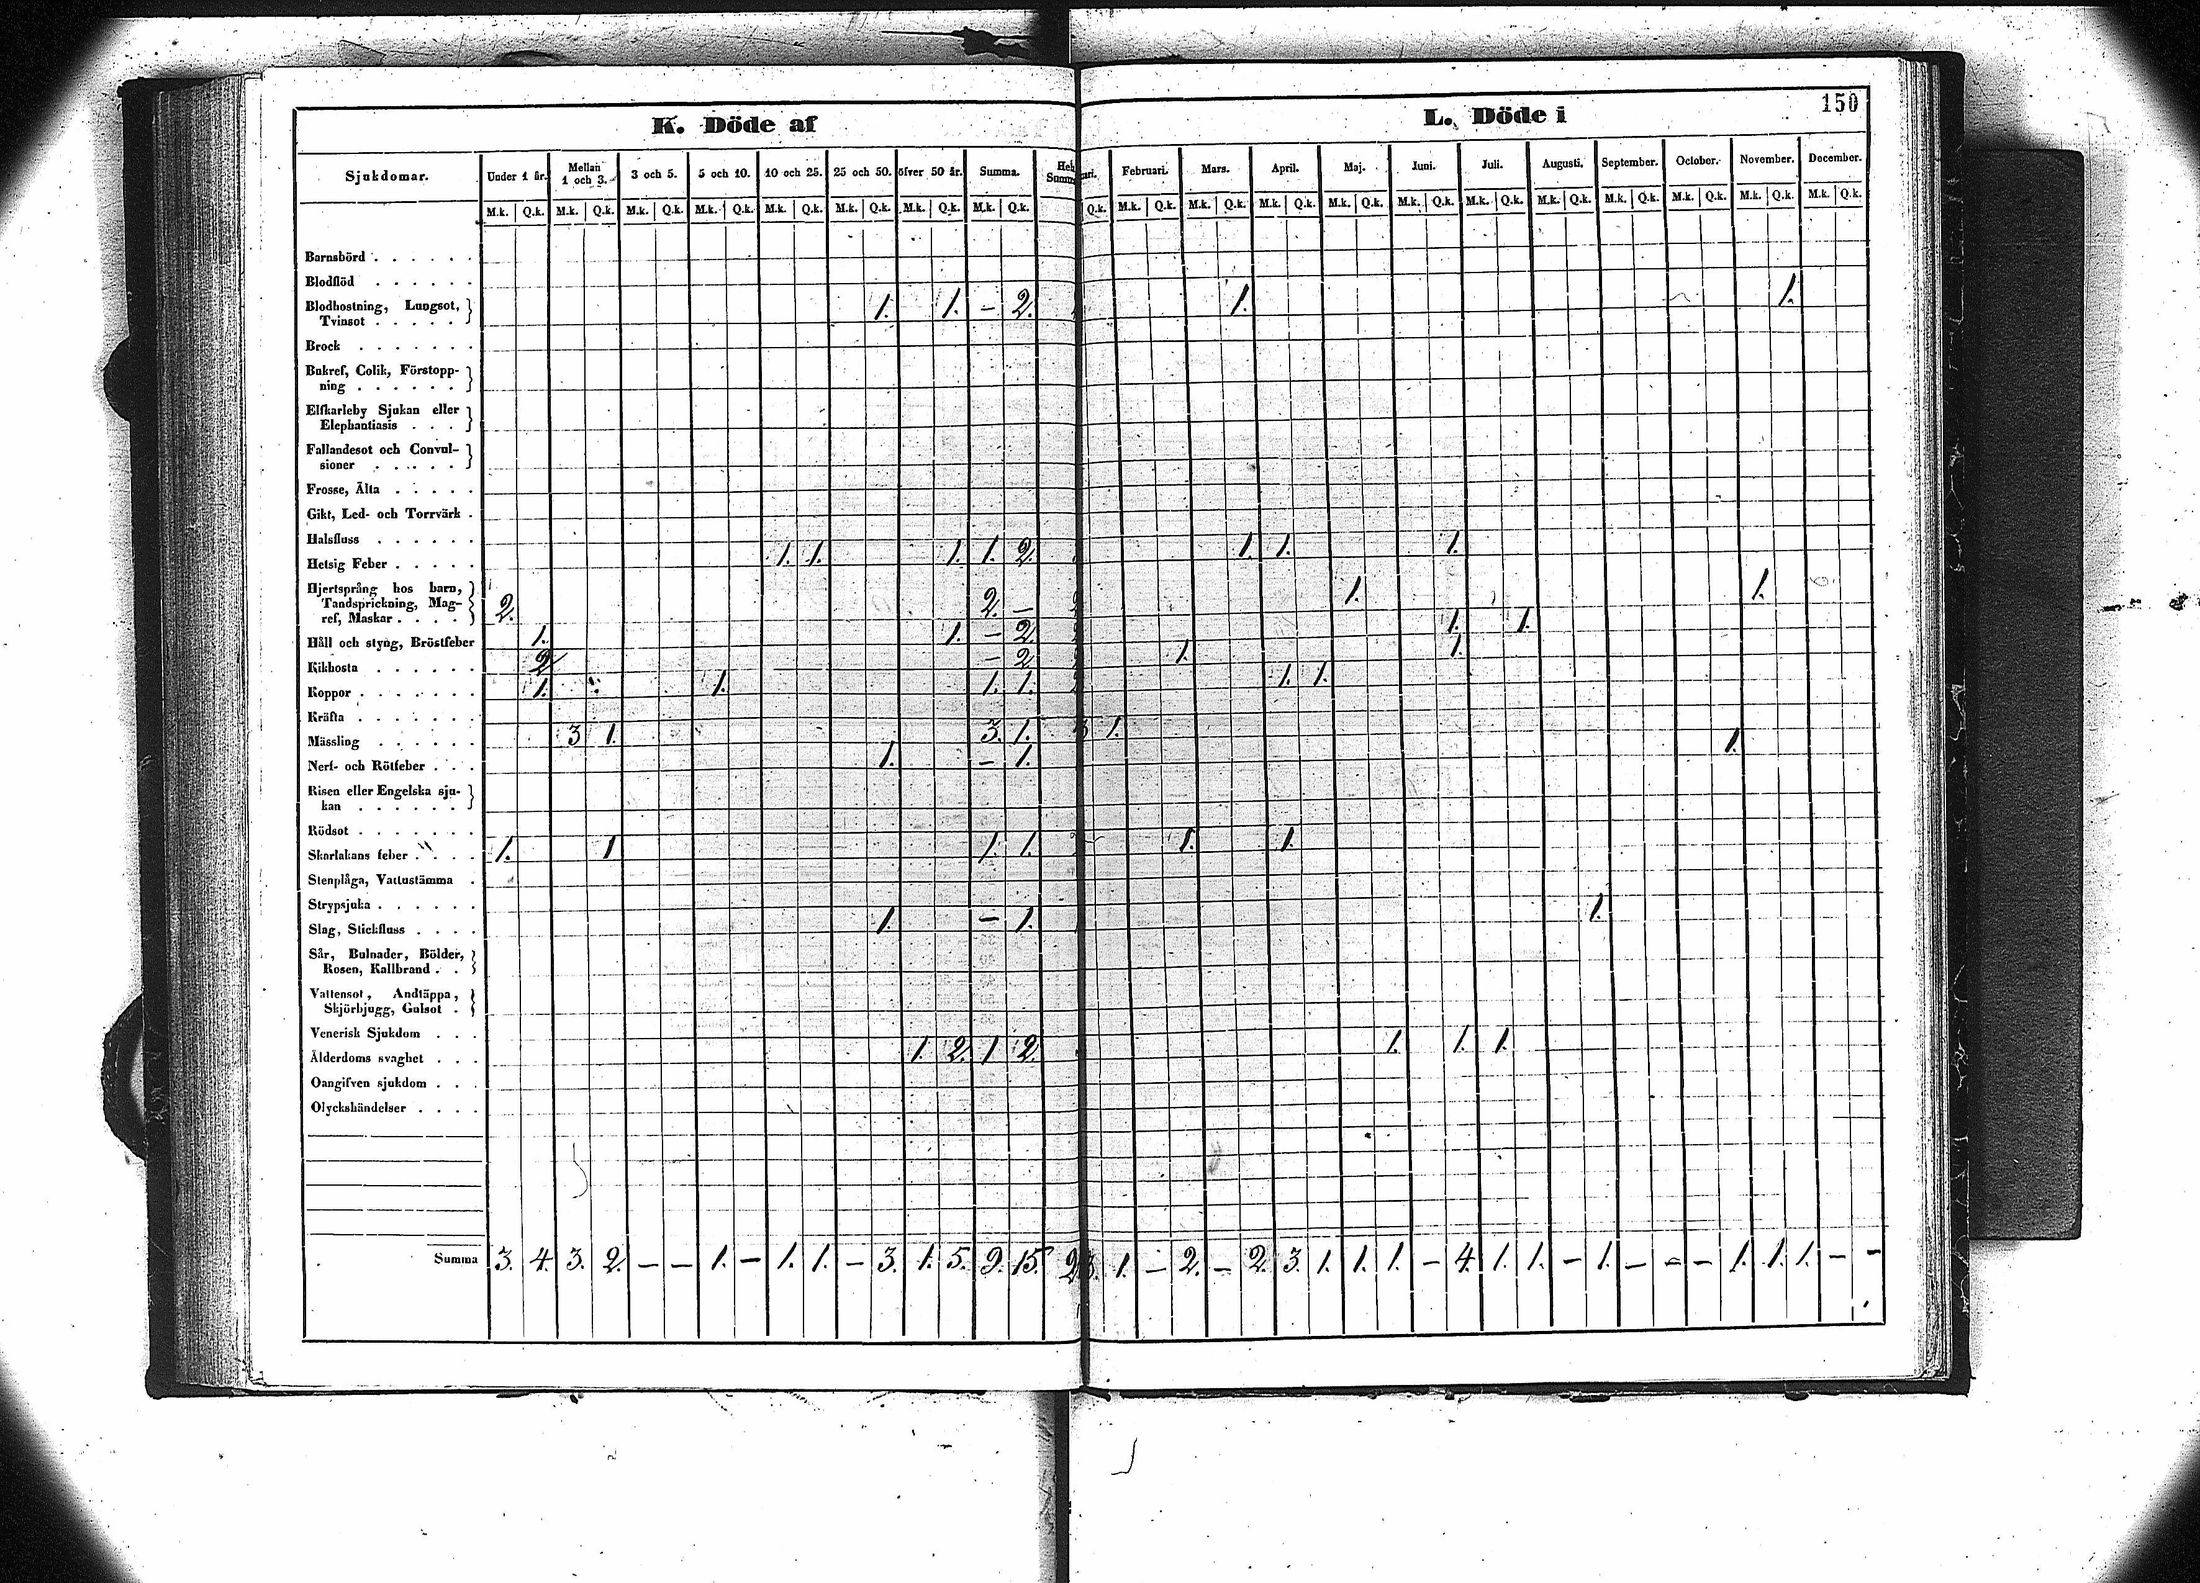 K. Döde af
L. Döde i
150
Sjukdomar. Under 1 år. Mellan 1 och 3. 3 och 5. 5 och 10. 10 och 25. 25 och 50. öfver 50 år. Summa. Februari. Mars. April. Maj. Juni. Juli. Augusti. September. October. November. December.
M.k. Q.k. M.k. Q.k. M.k. Q.k. M.k. Q.k. M.k. Q.k. M.k. Q.k. M.k. Q.k. M.k. Q.k. Q.k. M.k. Q.k. M.k. Q.k. M.k. Q.k. M.k. Q.k. M.k. Q.k. M.k. Q.k. M.k. Q.k. M.k. Q.k. M.k. Q.k. M.k. Q.k. M.k. Q.k.
Barnsbörd
Blodflöd
Blodhostning, Lungsot, 1. 1. – 2. 1. 1.
Tvinsot
Brock
Bukref, Colik, Förstopp-
ning
Elfkarleby Sjukan eller
Elephantiasis
Fallandesot och Convul-
sioner
Frosse, Älta
Gikt, Led- och Torrvärk
Halsfluss
Hetsig Feber 1. 1. 1. 1. 2. 1. 1. 1.
Hjertsprång hos barn,
Tandsprickning, Mag-
ref, Maskar 2. 2. – 1. 1.
Håll och styng, Bröstfeber 1. 1. – 2. 1. 1.
Kikhosta 2 – 2 1. 1.
Koppor 1. 1. 1. 1. 1. 1.
Kräfta
Mässling 3 1. 3. 1. 3 1.
Nerf- och Rötfeber 1. – 1. 1.
Risen eller Engelska sju-
kan
Rödsot
Skarlakans feber 1. 1 1. 1. 1. 1.
Stenplåga, Vattustämma
Strypsjuka
Slag, Stickfluss 1. – 1. 1.
Sår, Bulnader, Bölder,
Rosen, Kallbrand
Vattensot, Andtäppa,
Skjörbjugg, Gulsot
Venerisk Sjukdom
Ålderdoms svaghet 1. 2. 1 2. 1. 1. 1.
Oangifven sjukdom
Olyckshändelser
Summa 3. 4. 3. 2. – – 1. – 1. 1. – 3. 1. 5. 9. 15. 3. 1. – 2. – 2. 3. 1. 1. 1. – 4. 1. 1. – 1. – – – 1. 1. 1. – –